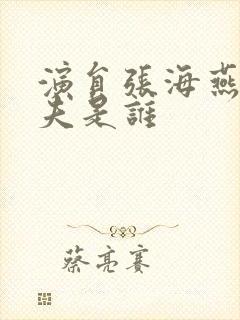 演員張海燕
夫是誰
蔡亮賽